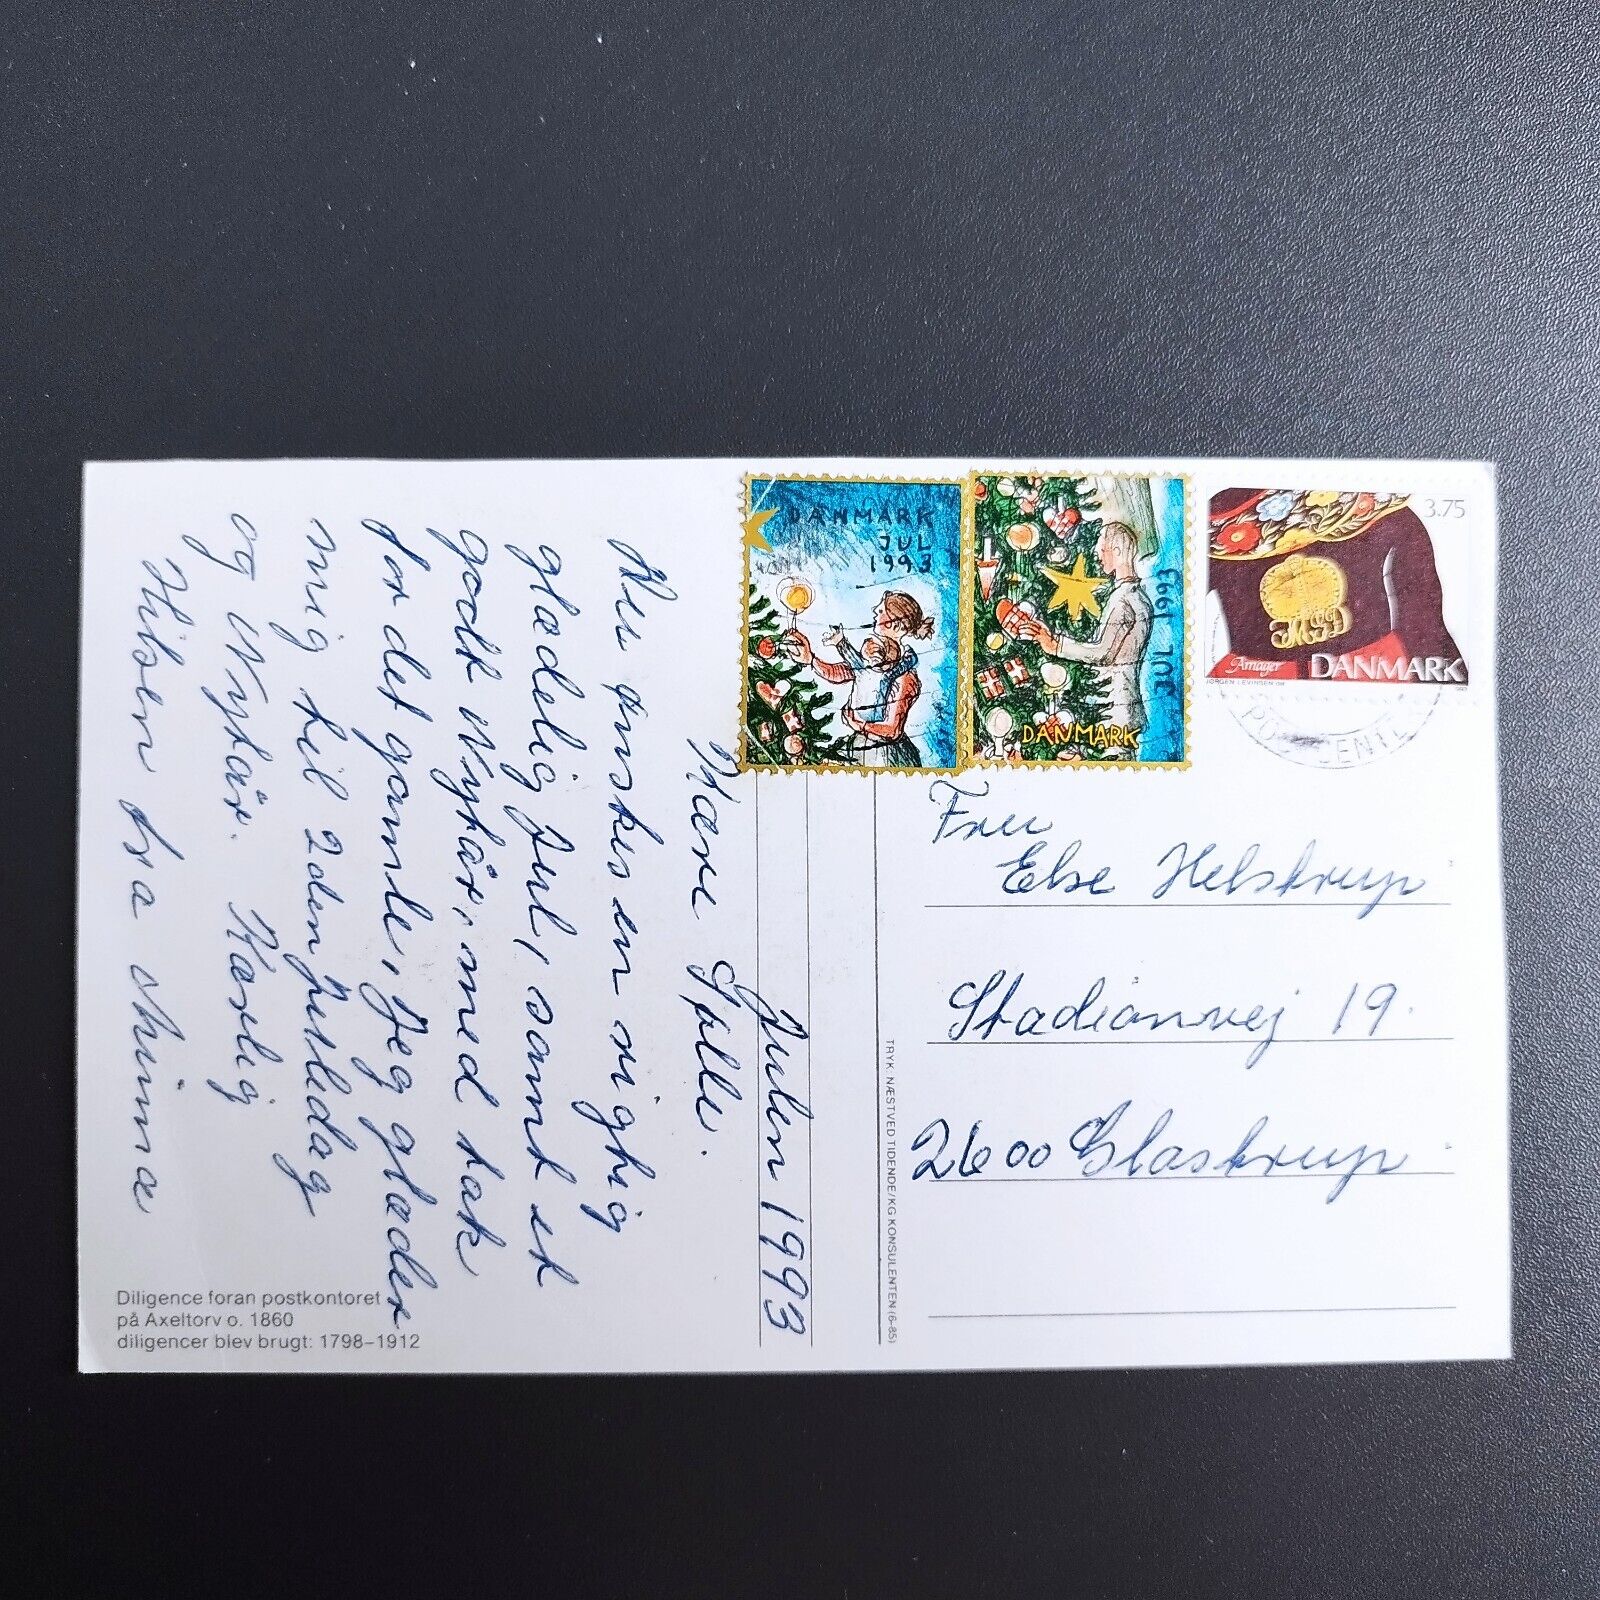 Julen 1993
Kære Sølle.
Nu ønskes en rigtig
glædelig Jul, samt et
godt Nytår, med tak
for det gamle, Jeg glæder
mig til 2den Juledag
og Nytår. Kærlig
Hilsen fra Minna
Diligence foran postkontoret
på Axeltorv o. 1860
diligencer blev brugt: 1798–1912
TRYK: NÆSTVED TIDENDE/KG KONSULENTEN (6-85)
DANMARK
JUL
1993
JUL 1993
DANMARK
3.75
Amager
DANMARK
JØRGEN LEVINSEN
1993
POSTCENTER
Fru
Else Helstrup
Stadionvej 19.
2600 Glostrup